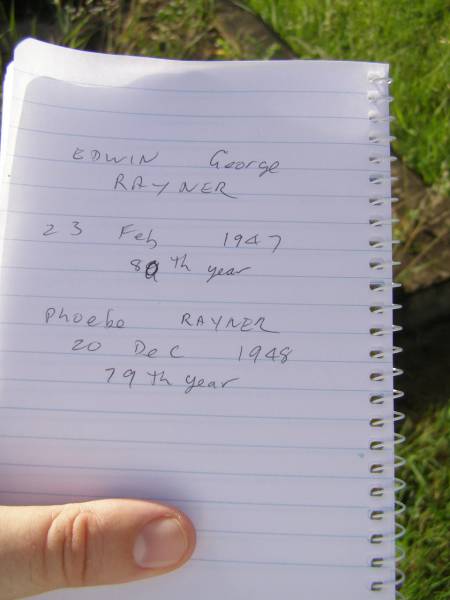 EDWIN George
RAYNER
23 Feb 1947
80th year
Phoebe RAYNER
20 Dec 1948
79th year